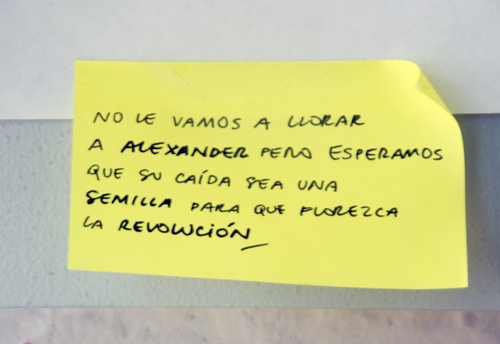 NO LE VAMOS A LLORAR
A ALEXANDER PERO ESPERAMOS
QUE SU CAÍDA SEA UNA
SEMILLA PARA QUE FLOREZCA
LA REVOLUCIÓN